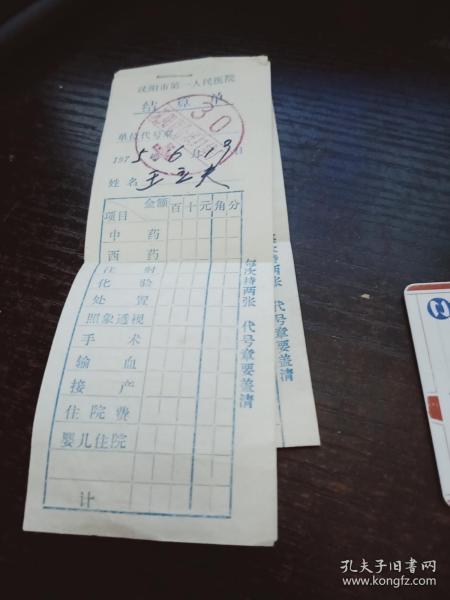 沈阳市第一人民医院
结算单
30
单位代号章
1975年6月19日
姓名 王立夫
项目 金额 百 十 元 角 分
中药
西药
注射
化验
处置
照象透视
手术
输血
接产
住院费
婴儿住院
计
每次持两张 代号章要盖清
孔夫子旧书网
www.kongfz.com